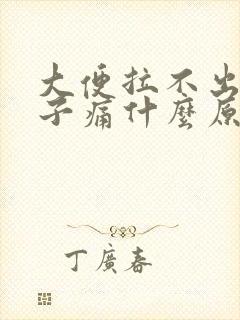 大便拉不出
子痛什麼原
丁廣春